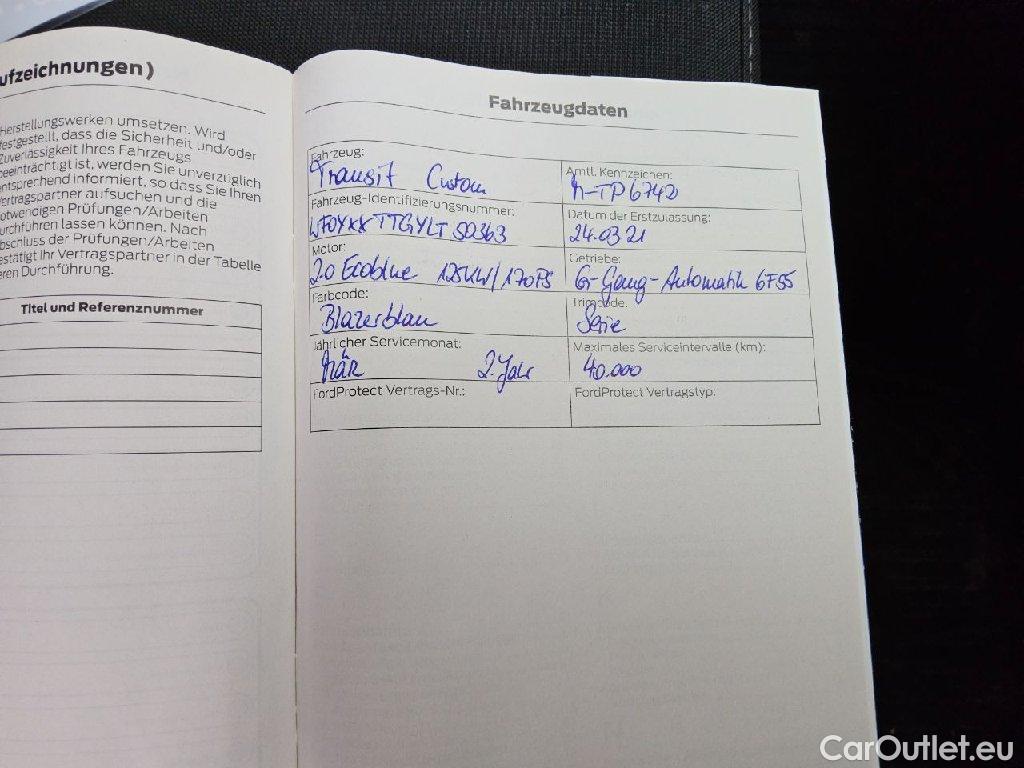 ufzeichnungen)
Herstellungswerken umsetzen. Wird
festgestellt, dass die Sicherheit und/oder
Zuverlässigkeit Ihres Fahrzeugs
beeinträchtigt ist, werden Sie unverzüglich
entsprechend informiert, so dass Sie Ihren
Vertragspartner aufsuchen und die
notwendigen Prüfungen/Arbeiten
durchführen lassen können. Nach
Abschluss der Prüfungen/Arbeiten
bestätigt Ihr Vertragspartner in der Tabelle
eren Durchführung.
Titel und Referenznummer
Fahrzeugdaten
Fahrzeug:
Transit Custom
Amtl. Kennzeichen:
M-TP6742
Fahrzeug-Identifizierungsnummer:
WF0YXXTTGYLT50363
Datum der Erstzulassung:
24.03.21
Motor:
2.0 Ecoblue 125KW/170PS
Getriebe:
6-Gang-Automatik 6F55
Farbcode:
Blazerblau
Trimcode:
Serie
Jährlicher Servicemonat:
März 2. Jahr
Maximales Serviceintervalle (km):
40.000
FordProtect Vertrags-Nr.:
FordProtect Vertragstyp:
CarOutlet.eu